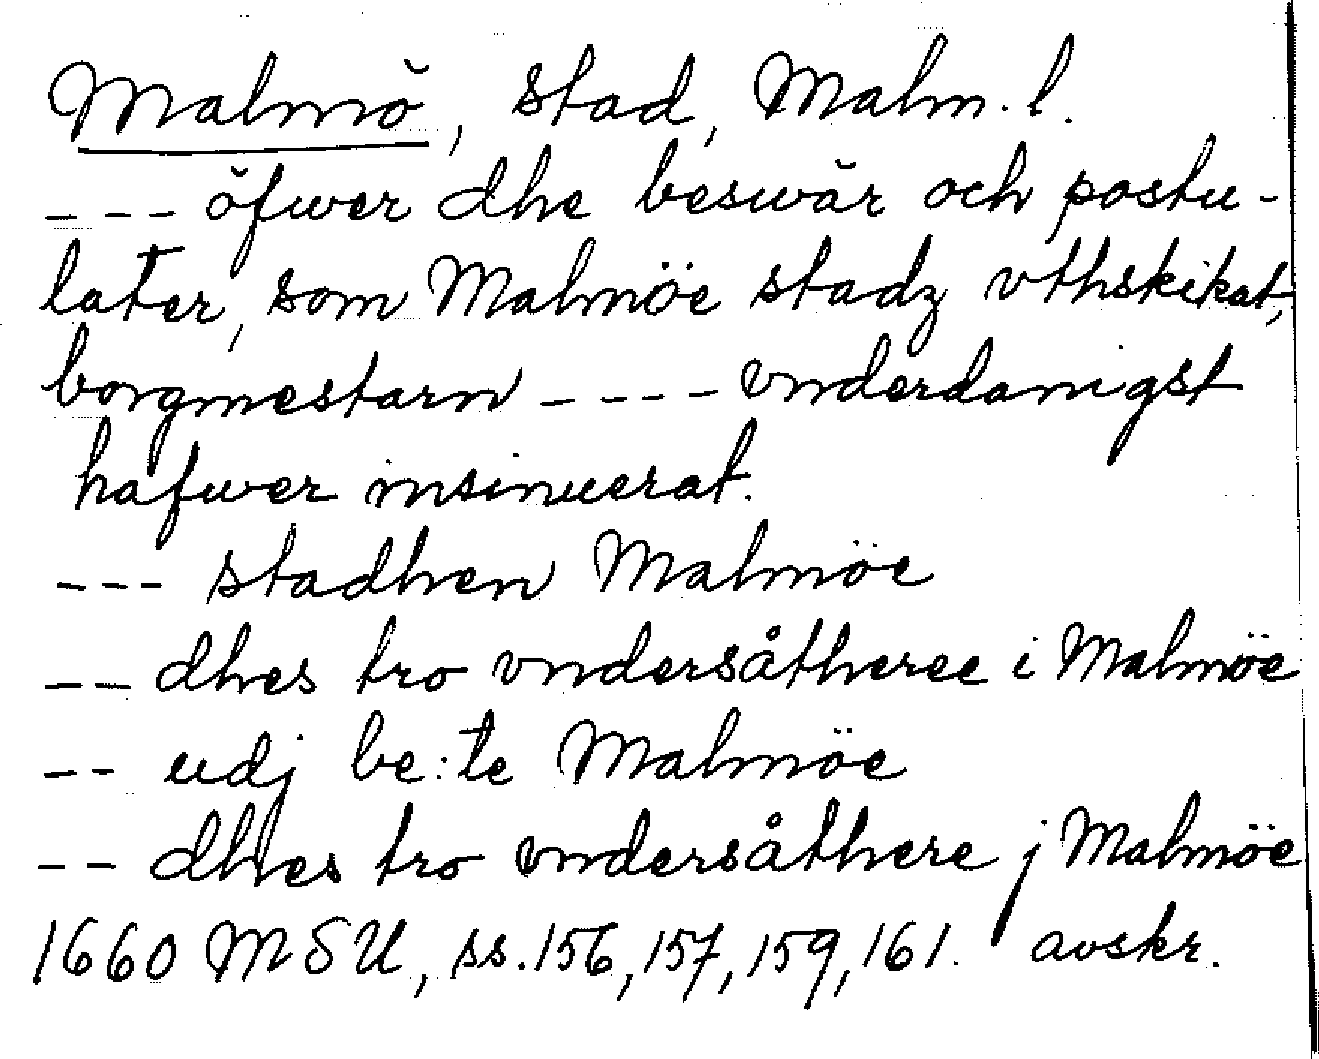 Malmö, stad, Malm. l.
--- öfwer dhe beswär och postu-
later, som Malmöe stadz vthskikat,
borgmestarn ---- vnderdanigst
hafwer insinuerat.
--- stadhen Malmöe
-- dhes tro vndersåtheree i Malmöe
-- udj be:te Malmöe
-- dhes tro vndersåthere j Malmöe
1660 MSU, ss. 156, 157, 159, 161. avskr.